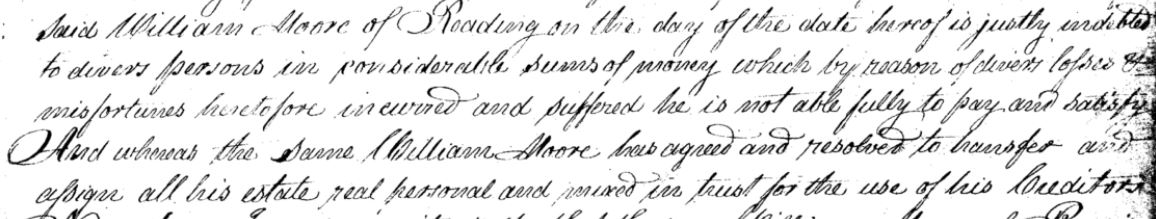 said William Moore of Reading on the day of the date hereof is justly indebted
to divers persons in considerable sums of money which by reason of divers losses &
misfortunes heretofore incurred and suffered he is not able fully to pay and satisfy
And whereas the same William Moore has agreed and resolved to transfer and
assign all his estate real personal and mixed in trust for the use of his Creditors